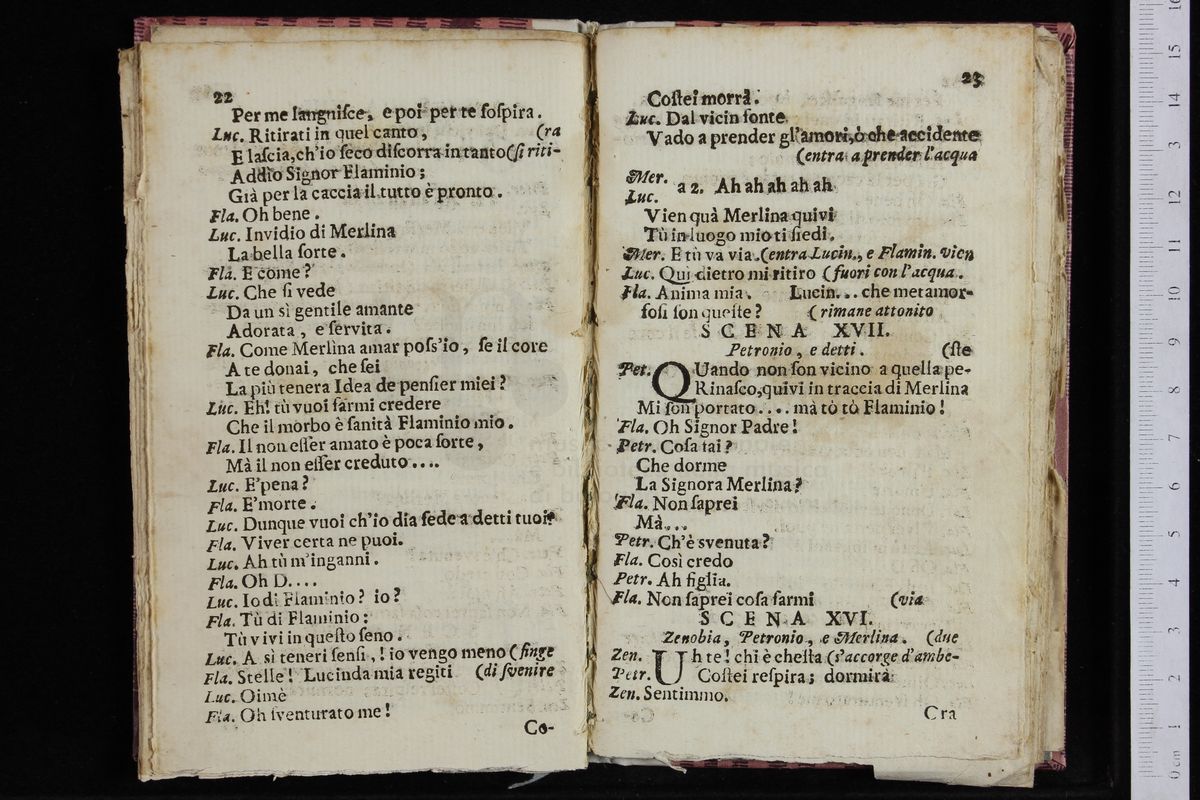 22
Per me languiſce, e poi per te ſoſpira.
Luc. Ritirati in quel canto, (ra
E laſcia, ch'io ſeco diſcorra in tanto (ſi riti-
Addio Signor Flaminio;
Già per la caccia il tutto è pronto.
Fla. Oh bene.
Luc. Invidio di Merlina
La bella ſorte.
Fla. E come?
Luc. Che ſi vede
Da un sì gentile amante
Adorata, e ſervita.
Fla. Come Merlina amar poſs'io, ſe il core
A te donai, che ſei
La più tenera Idea de penſier miei?
Luc. Eh! tù vuoi farmi credere
Che il morbo è ſanità Flaminio mio.
Fla. Il non eſſer amato è poca ſorte,
Mà il non eſſer creduto....
Luc. E' pena?
Fla. E' morte.
Luc. Dunque vuoi ch'io dia fede a detti tuoi?
Fla. Viver certa ne puoi.
Luc. Ah tù m'inganni.
Fla. Oh D....
Luc. Io di Flaminio? io?
Fla. Tù di Flaminio;
Tù vivi in queſto ſeno.
Luc. A sì teneri ſenſi,! io vengo meno (finge
Fla. Stelle! Lucinda mia regiti (di ſvenire
Luc. Oimè
Fla. Oh ſventurato me!
Co-
23
Coſtei morrà.
Luc. Dal vicin fonte
Vado a prender gl'amori, ò che accidente
(entra a prender l'acqua
Mer.
a 2. Ah ah ah ah ah
Luc.
Vien quà Merlina quivi
Tù in luogo mio ti ſiedi.
Mer. E tù va via. (entra Lucin., e Flamin. vien
Luc. Qui dietro mi ritiro (fuori con l'acqua.
Fla. Anima mia. Lucin... che metamor-
foſi ſon queſte? (rimane attonito
SCENA XVII.
Petronio, e detti. (ſte
Pet. QUando non ſon vicino a quella pe-
Rinaſco, quivi in traccia di Merlina
Mi ſon portato.... mà tò tò Flaminio!
Fla. Oh Signor Padre!
Petr. Coſa fai?
Che dorme
La Signora Merlina?
Fla. Non ſaprei
Mà...
Petr. Ch'è svenuta?
Fla. Così credo
Petr. Ah figlia.
Fla. Non ſaprei coſa farmi (via
SCENA XVI.
Zenobia, Petronio, e Merlina. (due
Zen. Uh te! chi è cheſta (s'accorge d'ambe-
Petr. Coſtei reſpira; dormirà
Zen. Sentimmo.
Cra